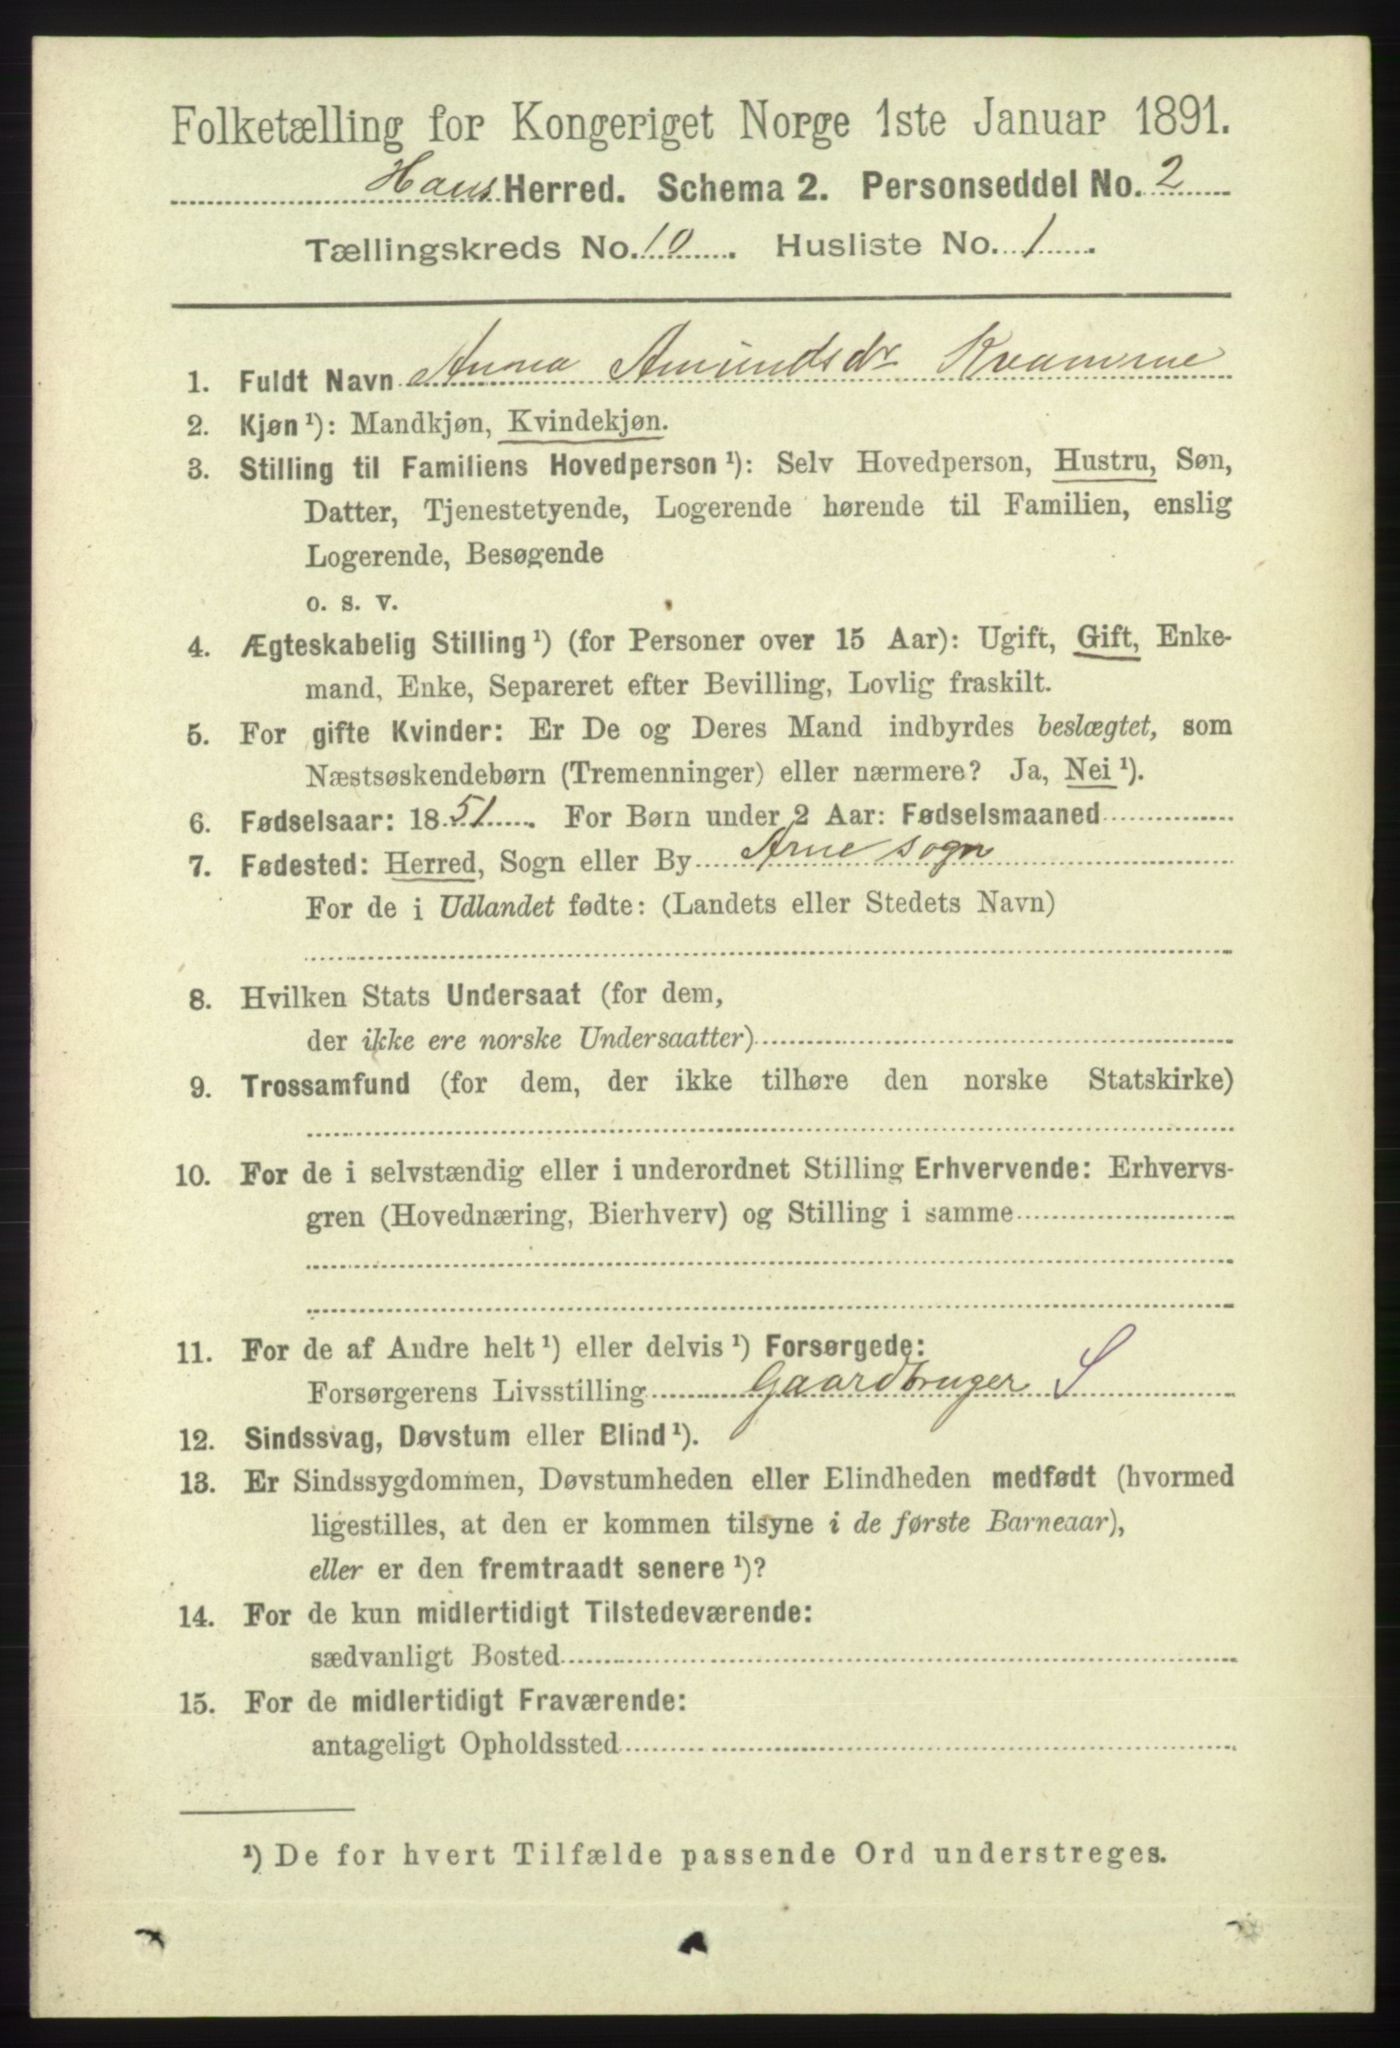 Folketælling for Kongeriget Norge 1ste Januar 1891.
Haus Herred. Schema 2. Personseddel No. 2
Tællingskreds No. 10. Husliste No. 1.
1. Fuldt Navn Anna Amundsdr Kvamme
2. Kjøn ¹): Mandkjøn, Kvindekjøn.
3. Stilling til Familiens Hovedperson ¹): Selv Hovedperson, Hustru, Søn,
Datter, Tjenestetyende, Logerende hørende til Familien, enslig
Logerende, Besøgende
o. s. v.
4. Ægteskabelig Stilling ¹) (for Personer over 15 Aar): Ugift, Gift, Enke-
mand, Enke, Separeret efter Bevilling, Lovlig fraskilt.
5. For gifte Kvinder: Er De og Deres Mand indbyrdes beslægtet, som
Næstsøskendebørn (Tremenninger) eller nærmere? Ja, Nei ¹).
6. Fødselsaar: 1851. For Børn under 2 Aar: Fødselsmaaned
7. Fødested: Herred, Sogn eller By Arne sogn
For de i Udlandet fødte: (Landets eller Stedets Navn)
8. Hvilken Stats Undersaat (for dem,
der ikke ere norske Undersaatter)
9. Trossamfund (for dem, der ikke tilhøre den norske Statskirke)
10. For de i selvstændig eller i underordnet Stilling Erhvervende: Erhvervs-
gren (Hovednæring, Bierhverv) og Stilling i samme
11. For de af Andre helt ¹) eller delvis ¹) Forsørgede:
Forsørgerens Livsstilling Gaardbruger S
12. Sindssvag, Døvstum eller Blind ¹).
13. Er Sindssygdommen, Døvstumheden eller Blindheden medfødt (hvormed
ligestilles, at den er kommen tilsyne i de første Barneaar),
eller er den fremtraadt senere ¹)?
14. For de kun midlertidigt Tilstedeværende:
sædvanligt Bosted
15. For de midlertidigt Fraværende:
antageligt Opholdssted
¹) De for hvert Tilfælde passende Ord understreges.